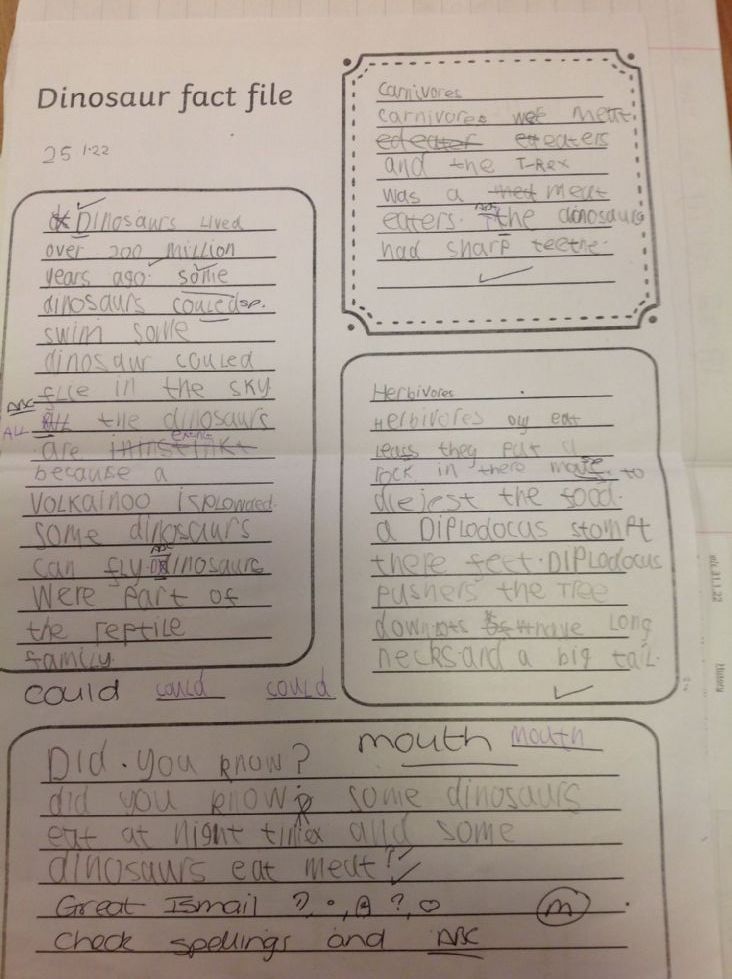 Dinosaur fact file
25.1.22
Dinosaurs lived
over 200 million
years ago. some
dinosaurs couled sp.
swim some
dinosaur couled
flie in the sky
ABC
ALL All the dinosaurs
are extinct
because a
volkainoo isplowded.
some dinosaurs
ABC
can fly. Dinosaurs
were part of
the reptile
family.
could could could
Carnivores
carnivores meat
edeater eaters
and the T-Rex
was a med meat
ABC
eaters. the dinosaurs
had sharp teethe.
Herbivores
Herbivores eat
they put a
rock in there to
diejest the food.
a Diplodocus stompt
there feet. Diplodocus
pushers the Tree
down have long
necks. and a big tail.
mouth mouth
Did. you know?
did you know some dinosaurs
eat at night time and some
dinosaurs eat meat?
Great Ismail
check spellings and ABC
History